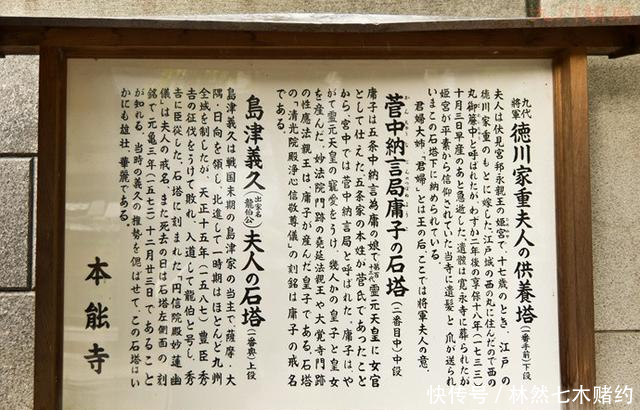 九代将軍 徳川家重夫人の供養塔(一番手前)下段
夫人は伏見宮邦永親王の姫宮で、十七歳のとき、江戸の
徳川家重のもとに嫁した。江戸城の西の丸に住んだので西の
丸御簾中と呼ばれたが、わずか二年後の享保十八年(一七三三)
十月三日早産のあと急逝した。遺骸は寛永寺に葬られたが
姫宮が平素から信仰されていた当寺に遺髪と爪が送られ
いまこの石塔下に納められている。
「君婦大姉」「君婦」とは王の后、ここでは将軍夫人の意。
菅中納言局庸子の石塔(二番目中)中段
庸子は五条中納言為庸の娘で霊元天皇に女官
として仕えた五条家の本性が菅氏であったこと
から、宮中では菅中納言局と呼ばれた。庸子はや
がて霊元天皇の寵愛をうけ、幾人かの皇子と皇女
を産んだ。妙法院門跡の堯延法親王や大覚寺門跡
の性應法親王は、庸子が産んだ皇子である。石塔
の「清光院殿浄心信敬尊儀」の刻銘は庸子の戒名
である。
島津義久(出家名龍伯公)夫人の石塔(一番奥)上段
島津義久は戦国末期の島津家の当主で、薩摩・大
隅・日向を領し、北進して一時期はほとんど九州
全域を制したが、天正十五年(一五八七)豊臣秀
吉の征伐をうけて敗れ、入道して龍伯と号し、秀
吉に臣従した。石塔に刻まれた「円信院殿妙蓮幽
儀」は夫人の戒名、また死去の日は石塔左側面の刻
銘で元亀三年(一五七二)十二月廿三日であること
が知れる。当時の義久の権勢を偲ばせて、この石塔はい
かにも雄壮、華麗である。
本能寺
快传号/林然七木赌约